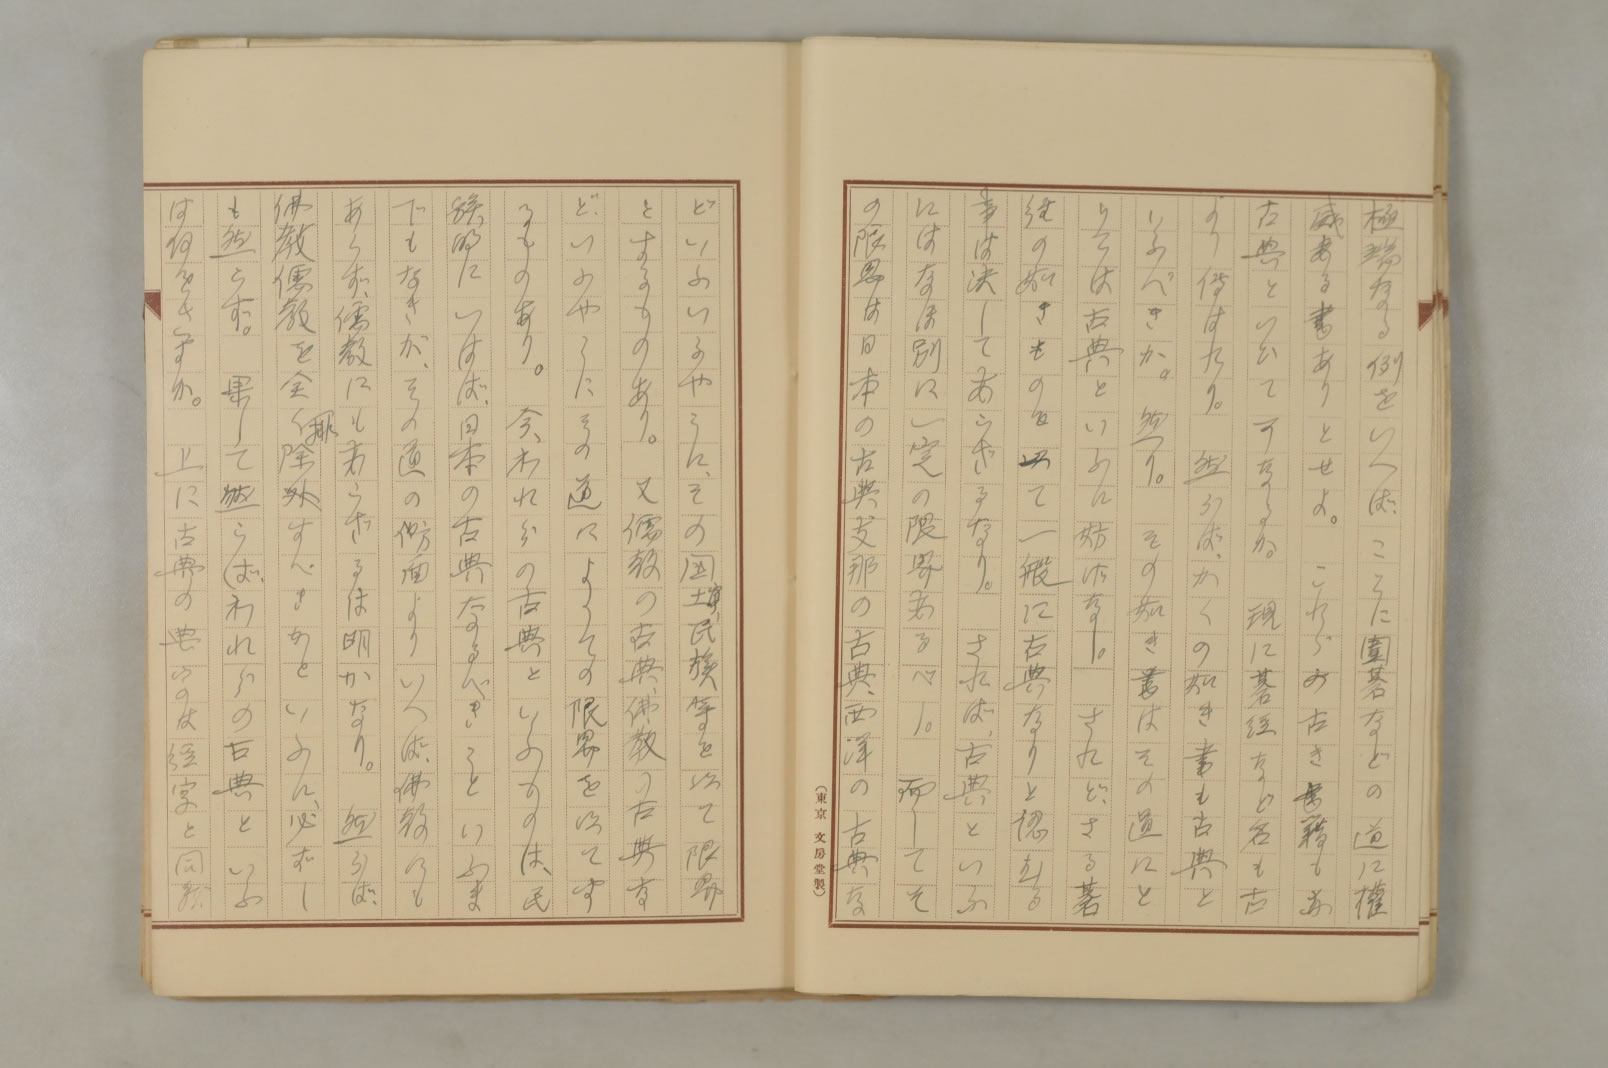 極端なる例をいへば、ここに圍碁などの道に權
威ある書ありとせよ。これらの古き書籍もあ
古典といひて可なるか。現に碁經など名も古
より傳はれり。然らば、かくの如き書も古典と
いふべきか。然り。その如き書はその道にと
りては古典といふに妨げなし。されど、さる碁
經の如きものを以て一般に古典なりと認むる
事は決してあらざるなり。されば、古典といふ
にはなほ別に一定の限界あるべし。而してそ
の限界は日本の古典、支那の古典、西洋の古典な
（東京 文房堂製）
どいふいふやうに、その国土、民族等を以て限界
とするものあり。又儒教の古典、佛教の古典な
どいふやうにその道によりての限界を以てす
るものあり。今、われらの古典といふものは、民
族的にいはば、日本の古典なるべきこといふま
でもなきが、その道の方面よりいへば、佛教にも
あらず、儒教にもあらざるは明かなり。然らば、
佛教儒教を全く排除すべきかといふに、必ずし
も然らず。果して然らば、われらの古典といふ
は何をさすか。上に古典の典の字は經字と同義